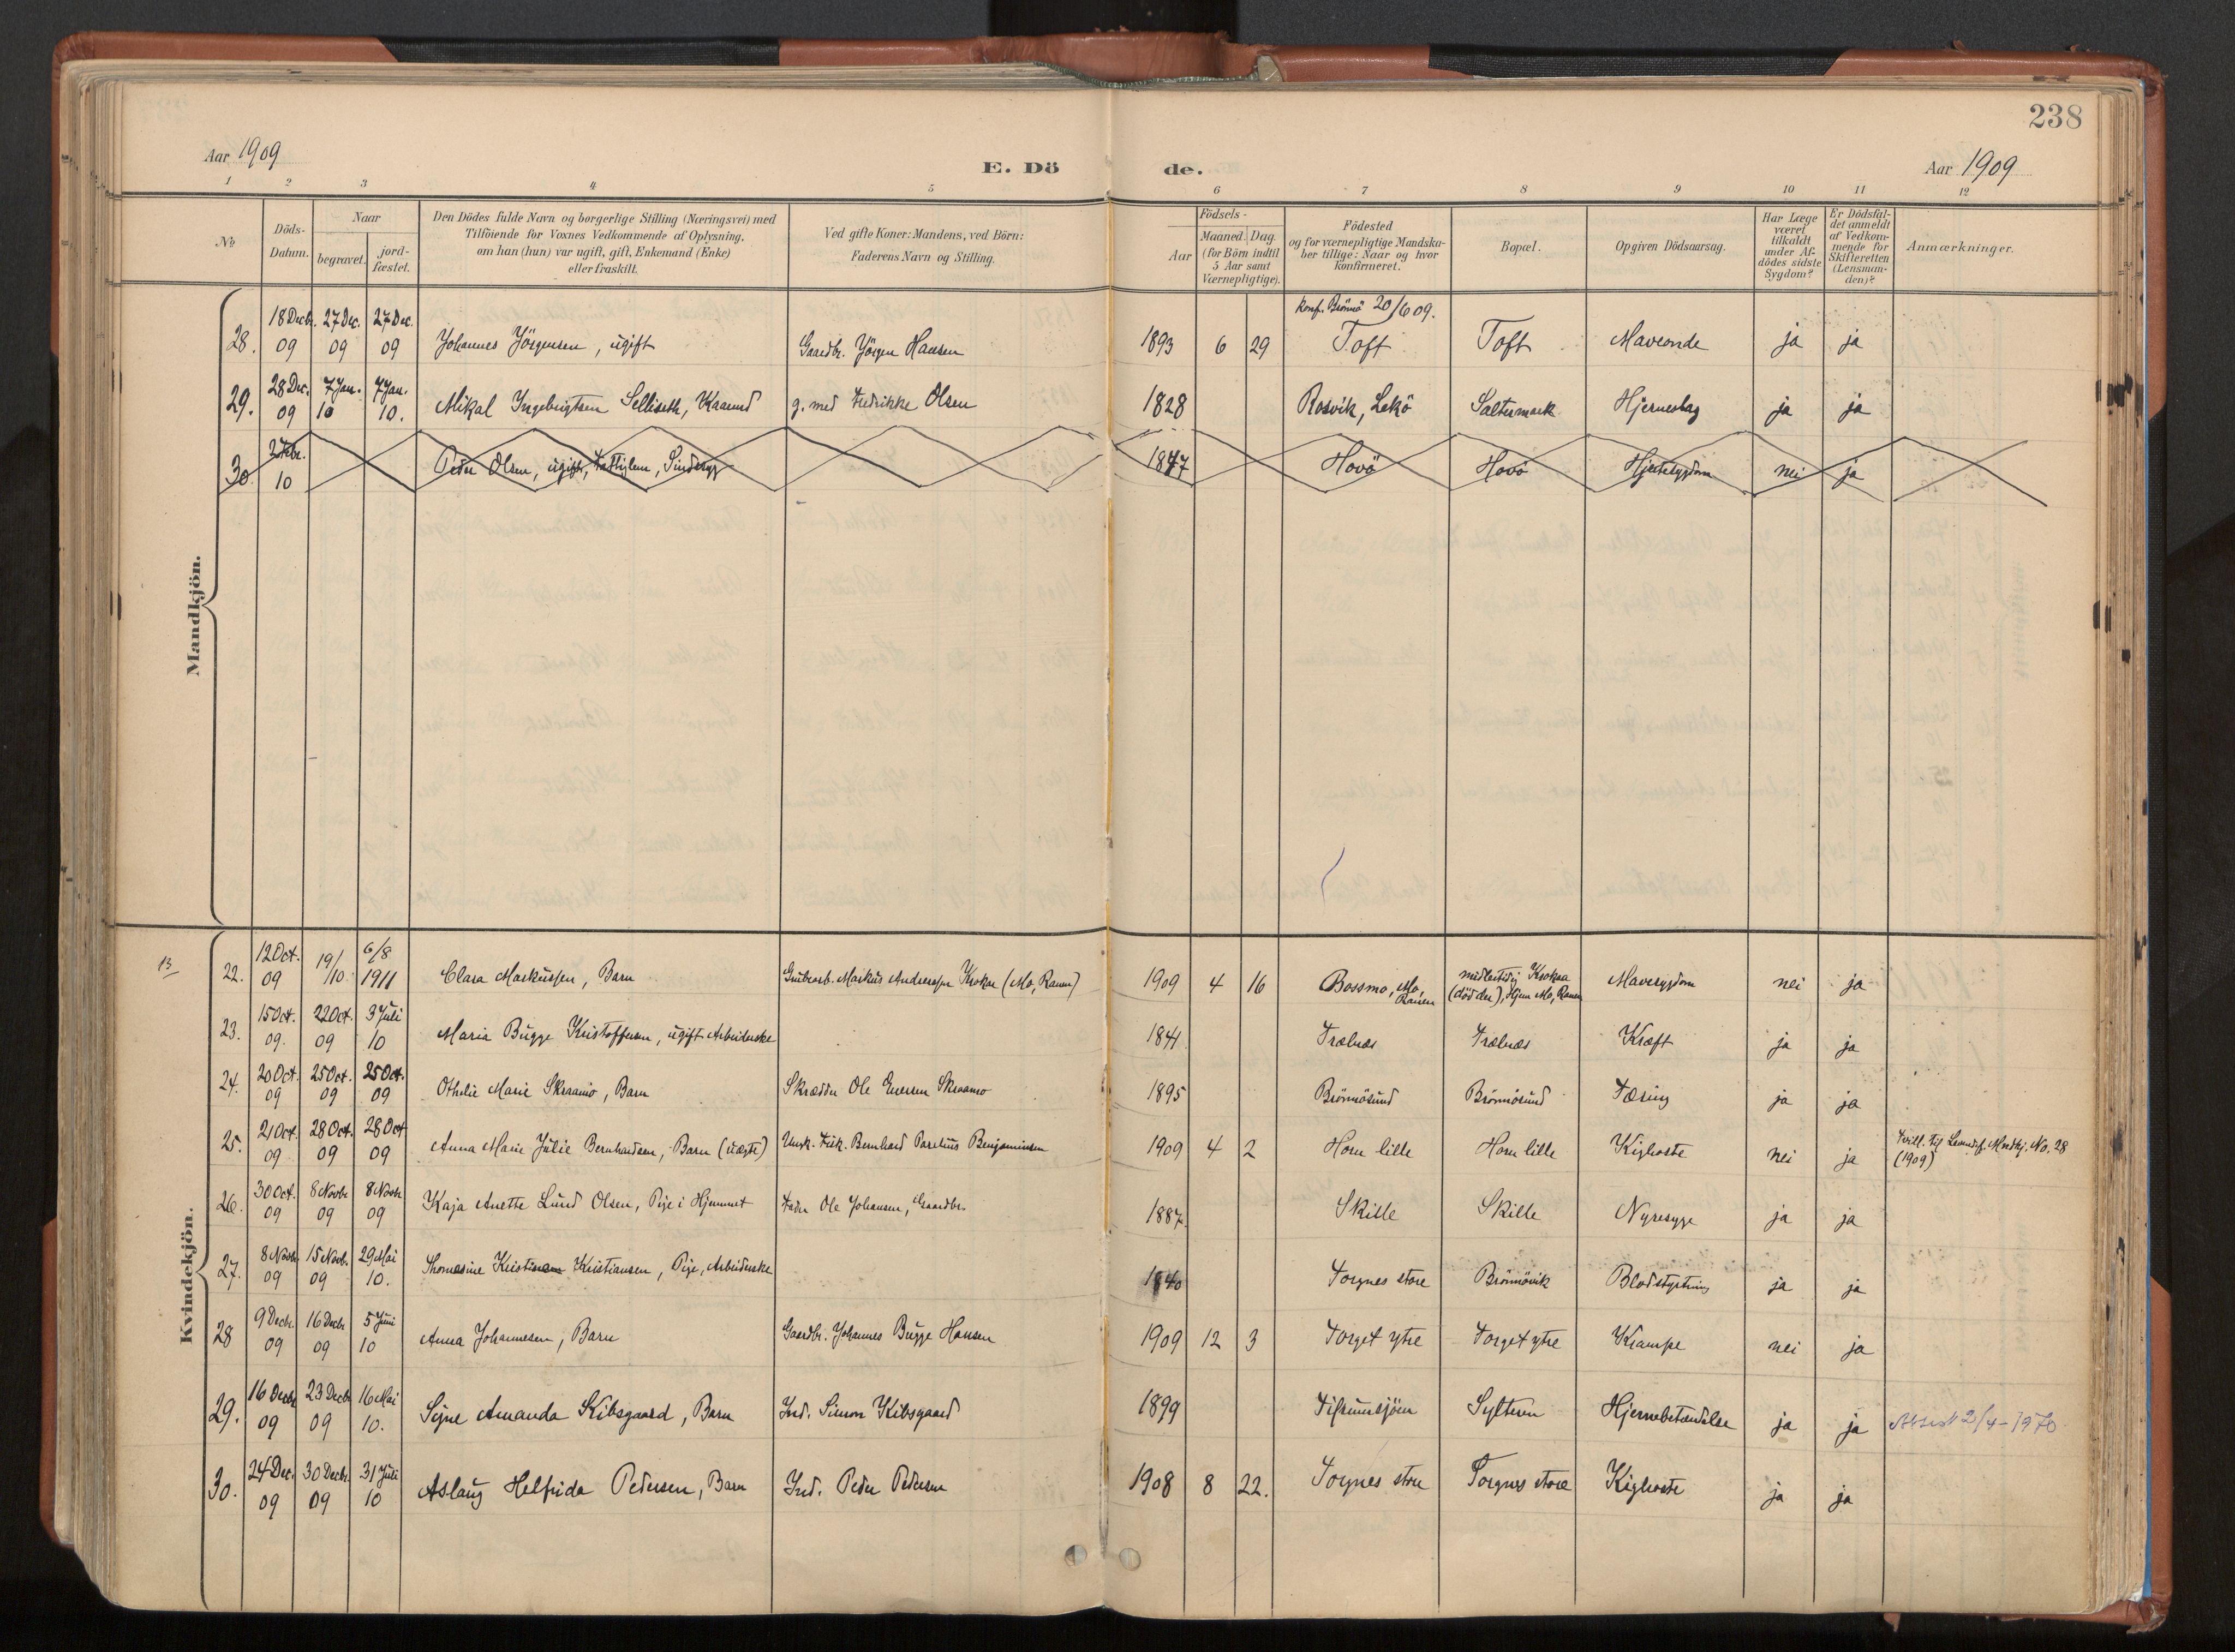 238
Aar 1909
E. Dö
de.
Aar 1909
1 2 3 4 5 6 7 8 9 10 11 12
No
Döds-Datum.
Naar
begravet.
jord-fæstet.
Den Dödes fulde Navn og borgerlige Stilling (Næringsvei) med
Tilföiende for Voxnes Vedkommende af Oplysning,
om han (hun) var ugift, gift, Enkemand (Enke)
eller fraskilt.
Ved gifte Koner: Mandens, ved Börn:
Faderens Navn og Stilling.
Födsels-
Aar
Maaned. Dag
(for Börn indtil
5 Aar samt
Værnepligtige).
Födested
og for værnepligtige Mandska-
ber tillige: Naar og hvor
konfirmeret.
Bopæl.
Opgiven Dödsaarsag.
Har Læge
været
tilkaldt
under Af-
dödes sidste
Sygdom?
Er Dödsfal-
det anmeldt
af Vedkom-
mende for
Skifteretten
(Lensman-
den)?
Anmærkninger.
Mandkjön.
konf. Brönnö 20/6 09.
28. 18 Decbr. 09 27 Dec. 09 27 Dec. 09 Johannes Jörgensen, ugift Gaardbr. Jörgen Hansen 1893 6 29 Toft Toft Maveonde ja ja
29. 28 Dec. 09 7 Jan. 10 7 Jan. 10. Mikal Ingebrigtsen Selliseth, Kaarmd g. med Fredrikke Olsen 1828 Rosvik, Lekö Saltermark Hjerneslag ja ja
30 10 Peder Olsen, ugift, Fattiglem, Sindssyg 1847 Hovö Hovö Hjertesygdom nei ja
Kvindekjön.
13
22. 12 Oct. 09 19/10 6/8 1911 Clara Markussen, Barn Grubearb. Markus Andreassen Krokaa (Mo, Ranen) 1909 4 16 Bossmo, Mo, Ranen midlertidig Krokaa (död der), Hjem Mo, Ranen Mavesygdom nei ja
23. 15 Oct. 09. 22 Oct. 09 3 Juli 10 Maria Bugge Kristoffersen, ugift Arbeiderske 1841 Trælnes Trælnes Kræft ja ja
24. 20 Oct. 09 25 Oct. 09 25 Oct. 09 Othelie Marie Skraamo, Barn Skrædder Ole Evensen Skraamo 1895 Brönnösund Brönnösund Tæring ja ja
25. 21 Oct. 09 28 Oct. 09 28 Oct 09 Anna Marie Julie Bernhardsen, Barn (uægte) Ungk. Fisk. Bernhard Parelius Benjaminsen 1909 4 2 Horn lille Horn lille Kighoste nei ja Tvill. til Mandkj. No. 28 (1909)
26. 30 Oct. 09 8 Novbr 09 8 Novbr 09 Kaja Anette Lund Olsen, Pige i Hjemmet Fader Ole Johansen, Gaardbr. 1887 Skille Skille Nyresyge ja ja
27. 8 Novbr 09 15 Novbr. 09 29 Mai 10. Thomasine Kristiansen, Pige, Arbeiderske 1840 Torgnes store Brönnövik Blodstyrtning ja ja
28 9 Decbr. 09 16 Decbr 09 5 Juni 10 Anna Johannesen, Barn Gaardbr. Johannes Bugge Hansen 1909 12 3 Torget ytre Torget ytre Krampe nei ja
29. 16 Decbr 09 23 Decbr 09 16 Mai 10. Signe Amanda Kibsgaard, Barn Ind. Simon Kibsgaard 1899 Sylteren Hjernebetændelse ja ja Attest 2/4-1970
30. 24 Dec. 09 30 Decbr. 09 31 Juli 10 Aslaug Helfrida Pedersen, Barn Ind. Peder Pedersen 1908 8 22. Torgnes store Torgnes store Kighoste ja ja